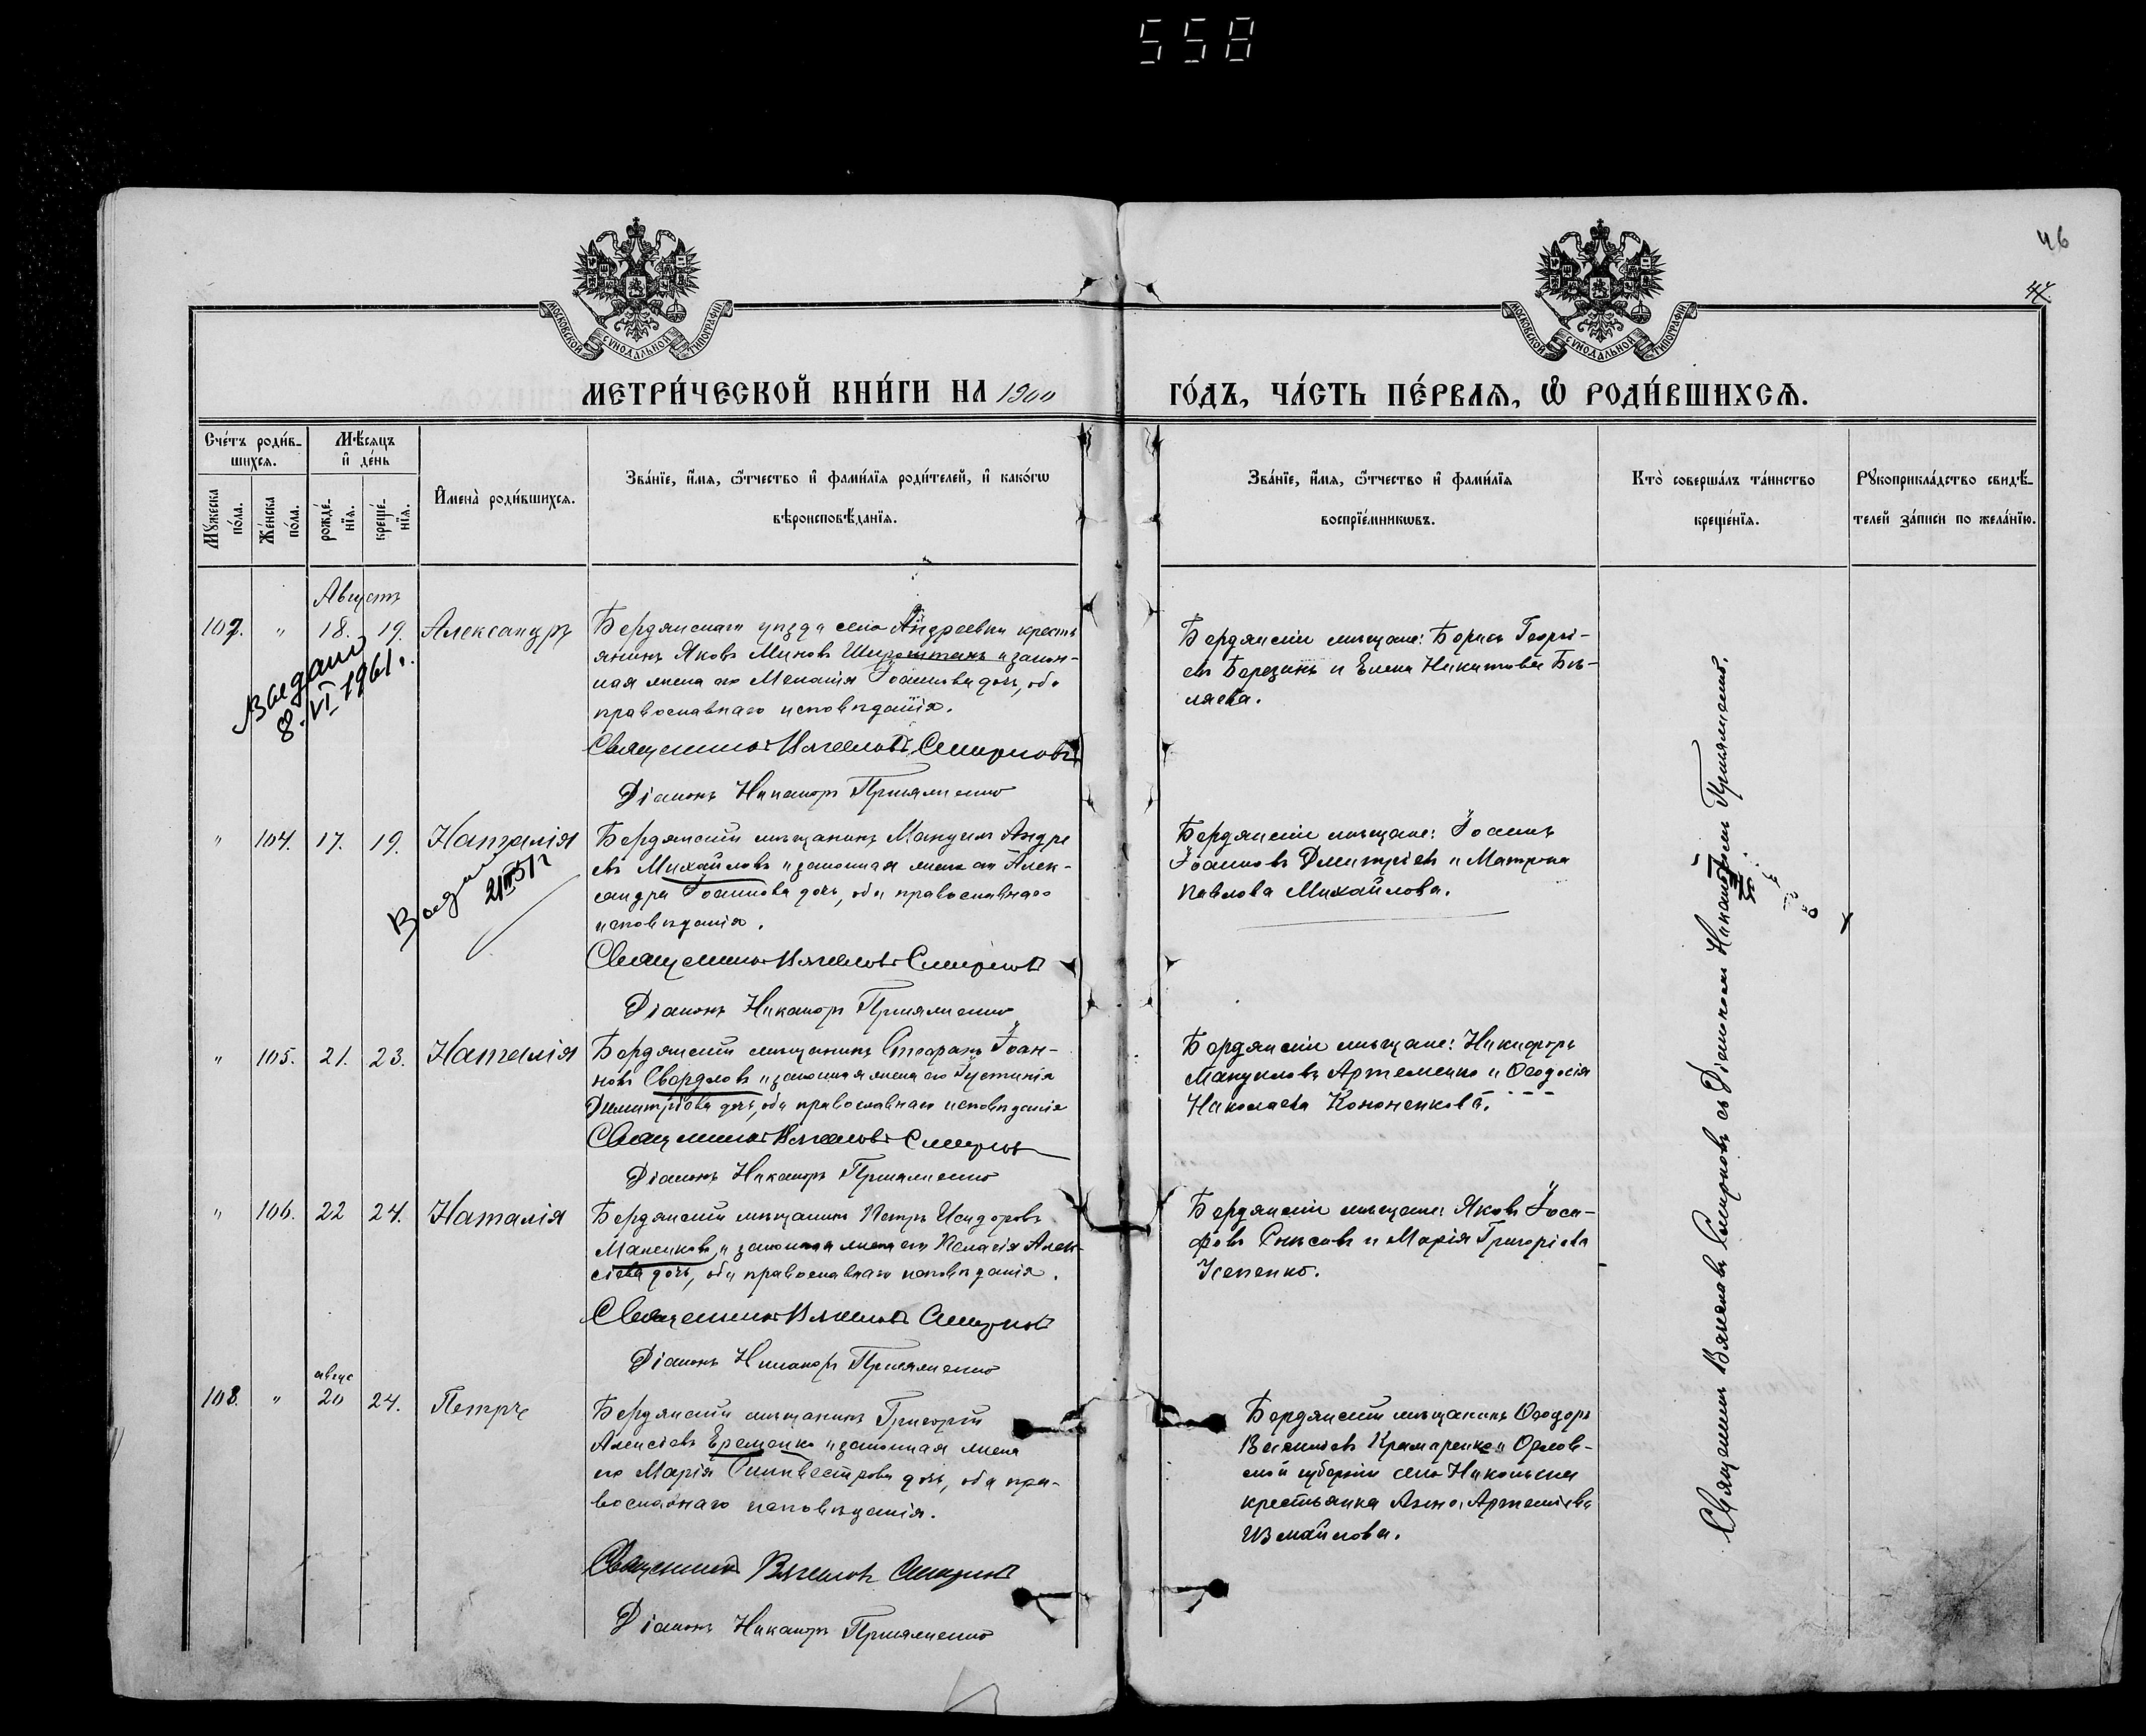 558
46
МОСКОВСКОЙ СѴНОДАЛЬНОЙ ТИПОГРАФІИ
МОСКОВСКОЙ СѴНОДАЛЬНОЙ ТИПОГРАФІИ
МЕТРИ́ЧЕСКОЙ КНИ́ГИ НА 1900
ГО́ДЪ, ЧА́СТЬ ПЕ́РВАѦ, Ѡ РОДИ́ВШИХСѦ.
Сче́тъ роди́в-
шихсѧ.
Мѣ́сяцъ
и҆ де́нь
Мꙋжеска
по́ла.
Же́нска
по́ла.
рожде́-
нїѧ.
креще́-
нїѧ.
И҆мена̀ роди́вшихсѧ.
Зва́нїе, и҆́мѧ, ѻ҆́тчество и҆ фами́лїѧ роди́телей, и҆ како́гѡ
вѣроисповѣ́данїѧ.
Зва́нїе, и҆́мѧ, ѻ҆́тчество и҆ фами́лїѧ
воспрїе́мникѡвъ.
Кто̀ соверша́лъ та́инство
креще́нїѧ.
Рꙋкоприкла́дство свидѣ́-
телей за́писи по жела́нїю.
Августъ
107. " 18. 19. Александръ
Бердянскаго уѣзда села Андреевки кресть
янинъ Яковъ Миновъ и закон-
ная жена его Мелания Іоаннова дочь, оба
православнаго исповѣданія.
Священникъ Вячеславъ Смирновъ
Діаконъ Никаноръ
Бердянскіе мѣщане: Борисъ Георгі-
евъ Березинъ и Елена Никитова Бѣ-
ляева.
Выдано
8.VI 1961г.
" 104. 17. 19. Наталія
Бердянскій мѣщанинъ Мануилъ Андре
евъ Михайловъ и законная жена его Алек-
сандра Іоаннова дочь, оба православнаго
исповѣданія.
Священникъ Вячеславъ Смирновъ
Діаконъ Никаноръ
Бердянскіе мѣщане: Іоаннъ
Іоанновъ Дмитріевъ и Матрона
Павлова Михайлова.
" 105. 21. 23. Наталія
Бердянскій мѣщанинъ Стефанъ Іоан-
новъ Свердловъ и законная жена его Іустинія
Димитріева дочь, оба православнаго исповѣданія
Священникъ Вячеславъ Смирновъ
Діаконъ Никаноръ
Бердянскіе мѣщане: Никифоръ
Мануиловъ Артеменко и Ѳеодосія
Николаева Кононенкова.
" 106. 22 24. Наталія
Бердянскій мѣщанинъ Петръ Исидоровъ
и законная жена его Пелагія Алек-
сіева дочь, оба православнаго исповѣданія.
Священникъ Вячеславъ Смирновъ
Діаконъ Никаноръ
Бердянскіе мѣщане: Яковъ Іоса-
фовъ и Марія Григоріева
Усепенко.
авгус
108. " 20 24. Петръ
Бердянскій мѣщанинъ Григорій
Алексіевъ Еременко и законная жена
его Марія Силивестрова дочь, оба пра-
вославнаго исповѣданія.
Священникъ Вячеславъ Смирновъ
Діаконъ Никаноръ
Бердянскій мѣщанинъ Ѳеодоръ
Василіевъ Крамаренко и Орлов-
ской губерніи села Никольска
крестьянка Анна Артеміева
Измайлова.
Священникъ Вячеславъ Смирновъ съ Діакономъ Никаноромъ